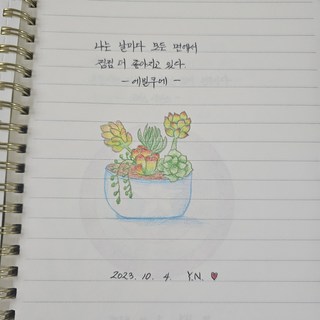 나는 날마다 모든 면에서
점점 더 좋아지고 있다
- 에밀쿠에 -
2023. 10. 4. Y.N. ♥